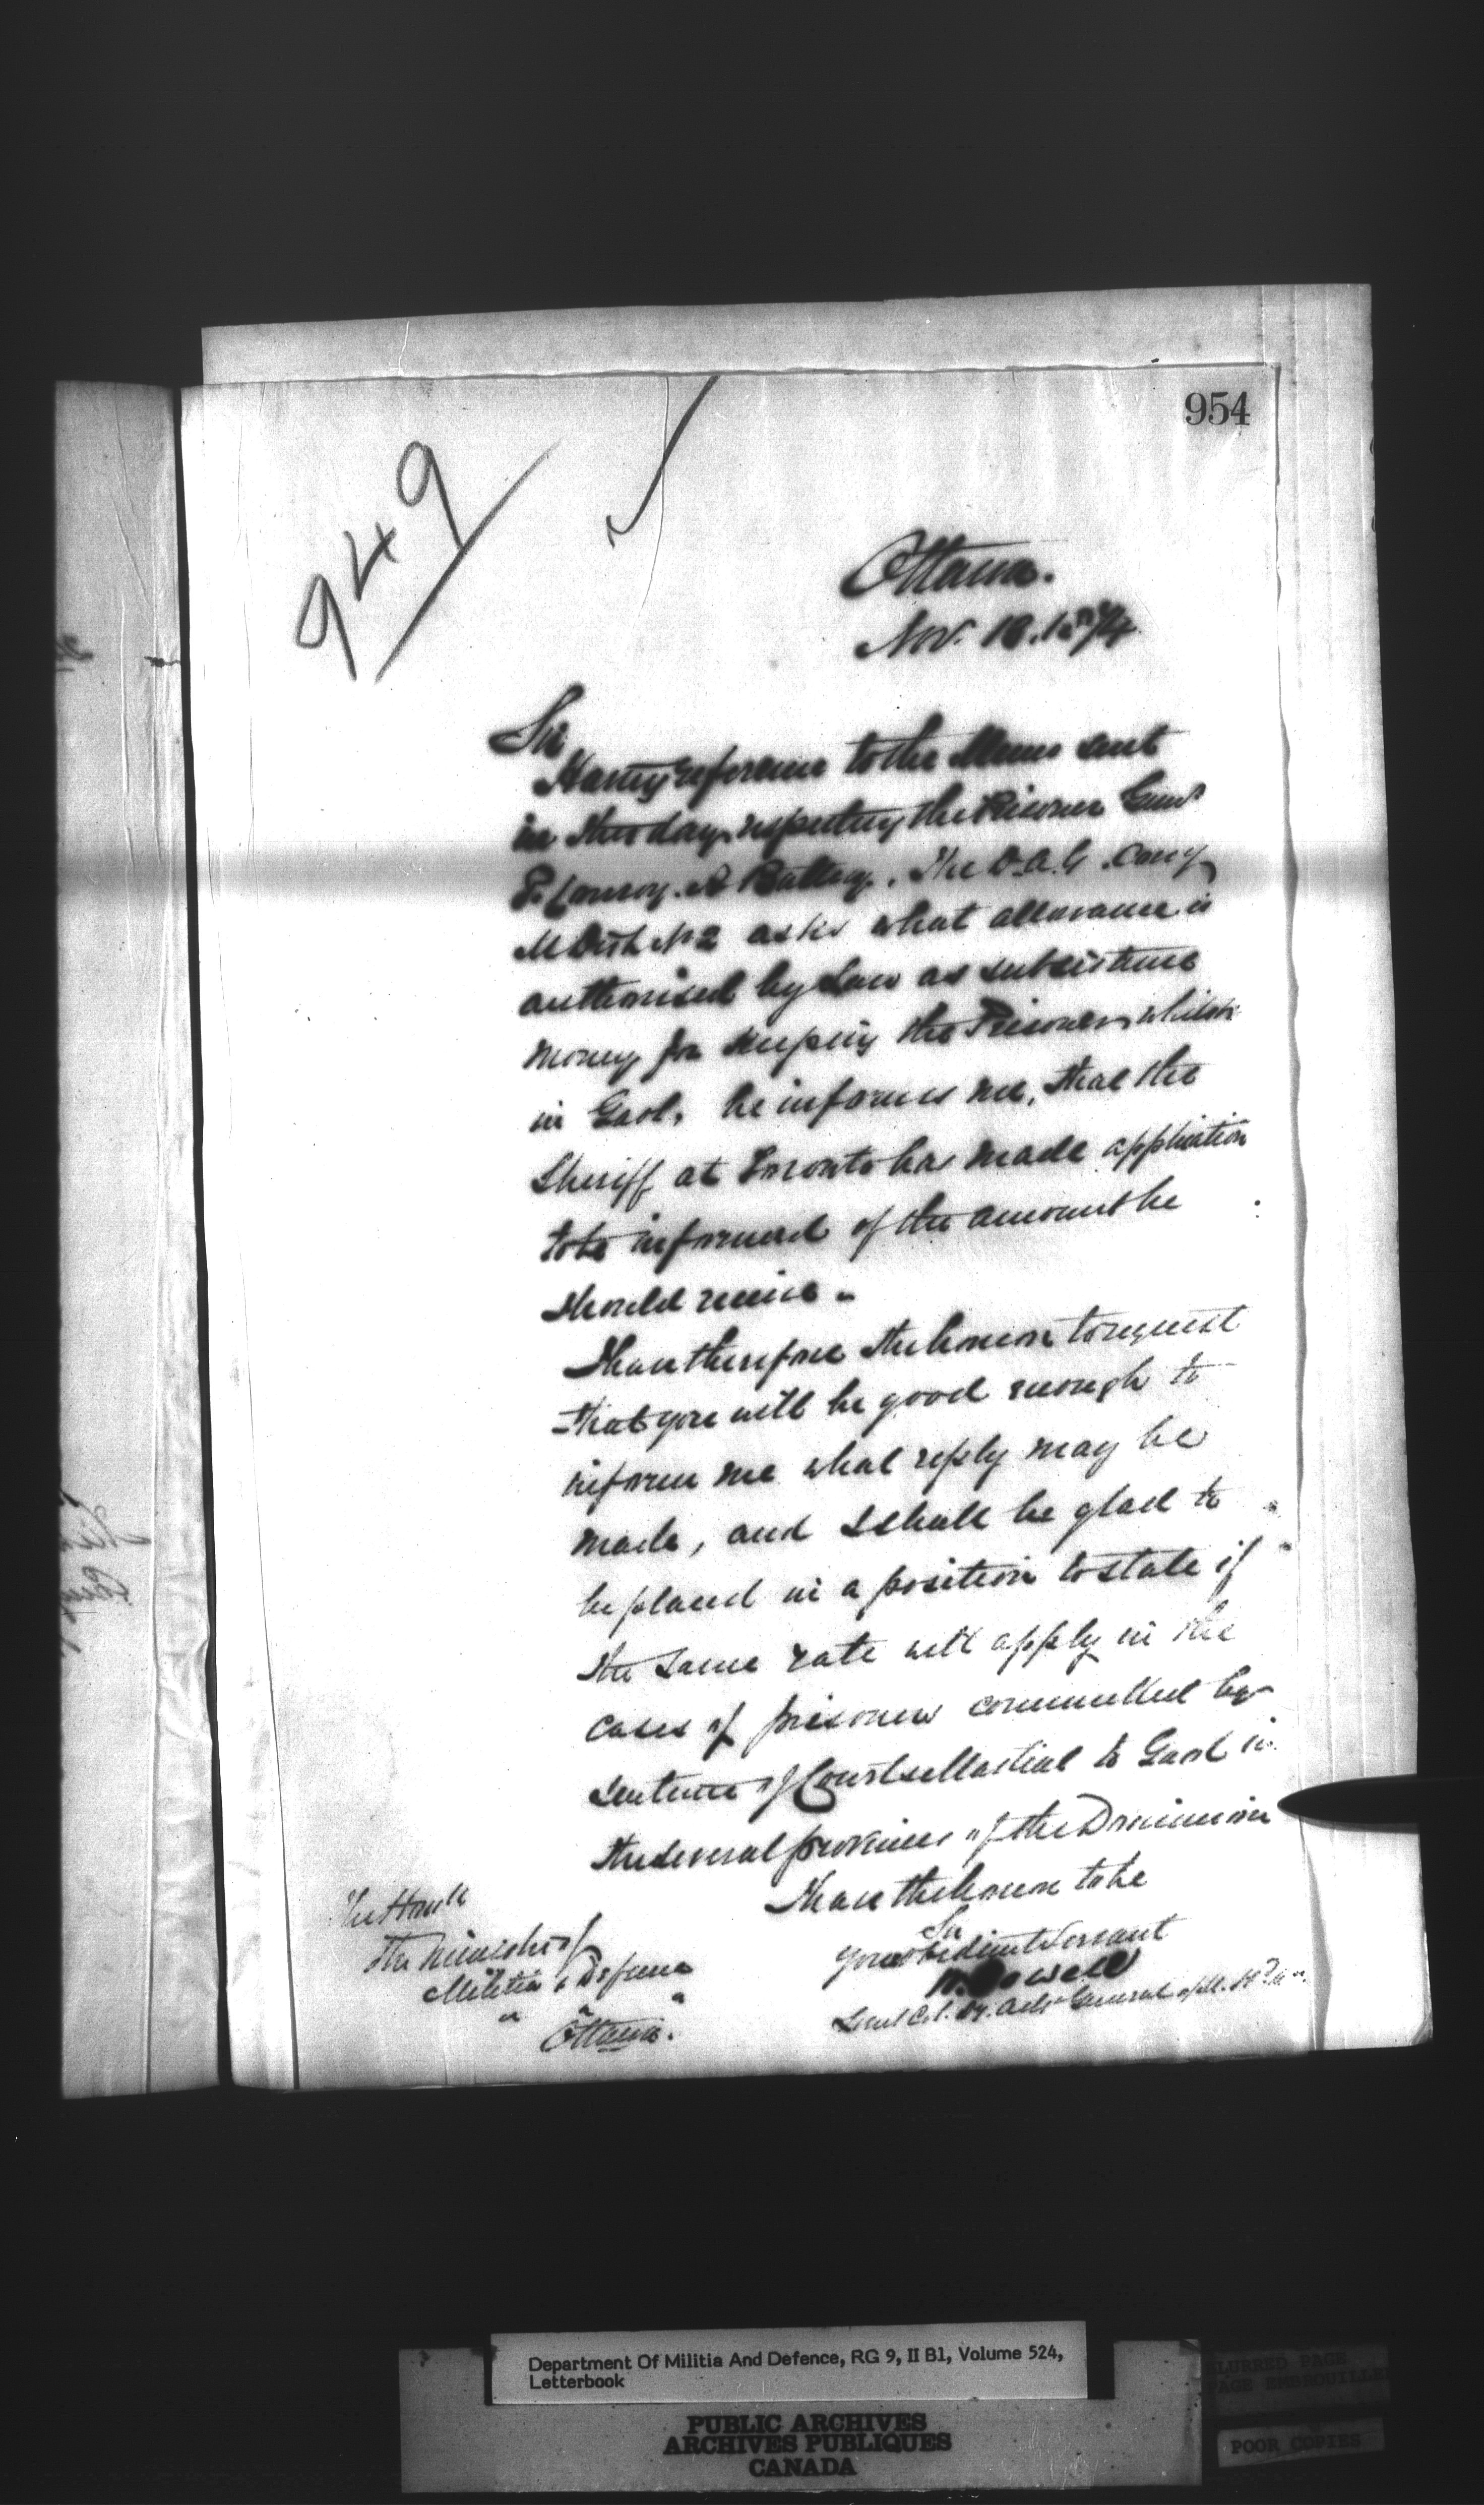 954
949
Ottawa.
Nov. 18. 1874
Sir
Having reference to the Memo sent
in this day, respecting the Prisoner Gunr
P. Conroy. A Battery. The D.A.G. Comg
M Dist No 2 asks what allowance is
authorised by Law as subsistence
money for keeping the Prisoner, whilst
in Gaol, he informs me, that the
Sheriff at Toronto has made application
to be informed of the amount he
should receive.
I have therefore the honor to request
that you will be good enough to
inform me what reply may be
made, and I shall be glad to
be placed in a position to state if
the same rate will apply in the
cases of prisoners committed by
sentence of Courts Martial to Gaol in
the several provinces of the Dominion
I have the honor to be
Sir
Your obedient Servant
W. Powell
Lieut Col. Dy. Adjt General of M.
The Honble
The Minister of
Militia & Defence
" " "
Ottawa.
Department Of Militia And Defence, RG 9, II B1, Volume 524,
Letterbook
PUBLIC ARCHIVES
ARCHIVES PUBLIQUES
CANADA
BLURRED PAGE
PAGE EMBROUILLE
POOR COPIES